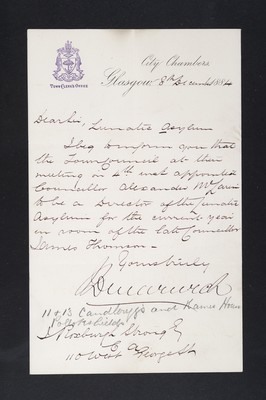 City Chambers
Town Clerks Office
Glasgow, 8th Decemr 1884
Dear Sir,
Lunatic Asylum
I beg to inform you that
the Town Council at their
meeting on 4th inst appointed
Councillor Alexander McLaren
to be a Director of the Lunatic
Asylum for the current year
in room of the late Councillor
James Thomson.
Yours truly
11 & 13 Candleriggs and Thames House
J Roxburgh Strang Esq
C A
110 West George St